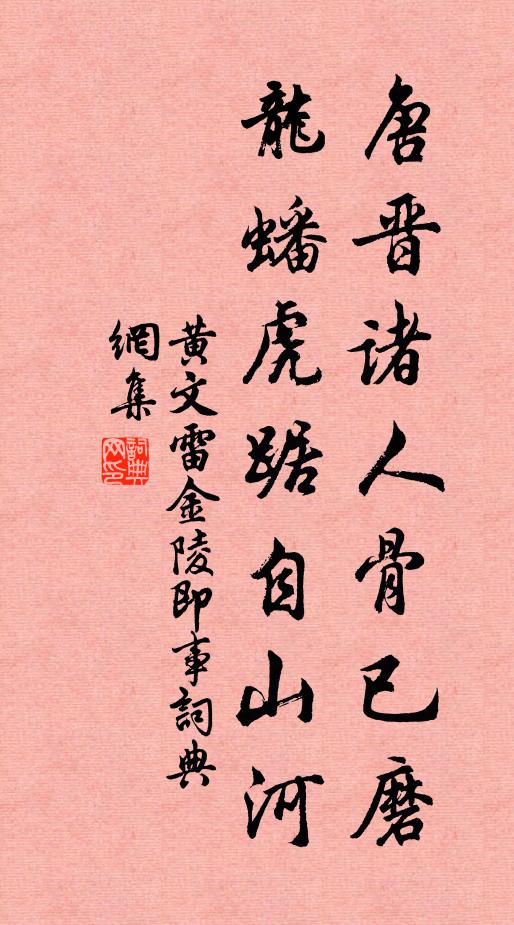 唐晋诸人骨已磨
龍蟠虎踞自山河
黄文雷金陵即事詞典
網集
詞典
网印